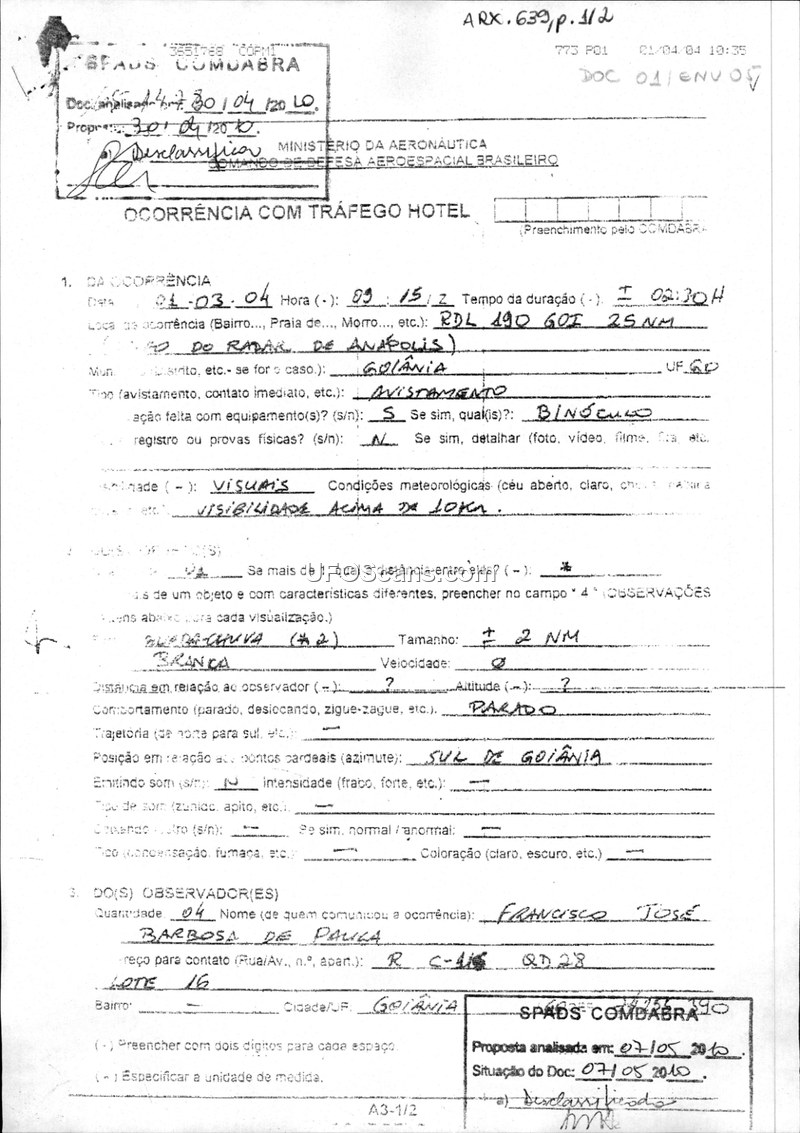 ARX. 639, p. 1/2
3651768 COPM1 773 P01 01/04/04 10:35
DOC 01/ENV 05
SPADS COMDABRA
Doc. analisado 30/04/2010.
30/04/2010.
a) Desclassificar
MINISTÉRIO DA AERONÁUTICA
COMANDO DE DEFESA AEROESPACIAL BRASILEIRO
OCORRÊNCIA COM TRÁFEGO HOTEL
(Preenchimento pelo COMDABRA
1. DA OCORRÊNCIA
Data 01-03-04 Hora (-): 09:15/Z Tempo da duração (-): ± 02:30H
Local de ocorrência (Bairro..., Praia de..., Morro..., etc.): RDL 190 GOI 25NM
DO RADAR DE ANÁPOLIS)
Mun. Distrito, etc.- se for o caso.): GOIÂNIA UF GO
Tipo (avistamento, contato imediato, etc.): AVISTAMENTO
ação feita com equipamento(s)? (s/n): S Se sim, qual(is)?: BINÓCULO
registro ou provas físicas? (s/n): N Se sim, detalhar (foto, vídeo, filme, fita, etc.
(~): VISUAIS Condições meteorológicas (céu aberto, claro,
etc. VISIBILIDADE ACIMA DE 10KM.
Se mais de 1, qual a distância entre eles? (~): *
UFOScans.com
de um objeto e com características diferentes, preencher no campo "4" (OBSERVAÇÕES
itens abaixo para cada visualização.)
GUARDA-CHUVA (*2) Tamanho: ± 2 NM
BRANCA Velocidade: Ø
Distância em relação ao observador (~): ? Altitude (~): ?
Comportamento (parado, deslocando, zigue-zague, etc.). PARADO
Trajetória (de norte para sul, etc.): —
Posição em relação aos pontos cardeais (azimute): SUL DE GOIÂNIA
Emitindo som (s/n): N Intensidade (fraco, forte, etc.): —
Tipo de som (zunido, apito, etc.). —
(s/n): — Se sim, normal / anormal: —
Tipo (condensação, fumaça, etc.: — Coloração (claro, escuro, etc.) —
3. DO(S) OBSERVADOR(ES)
Quantidade 04 Nome (de quem comunicou a ocorrência): FRANCISCO JOSÉ
BARBOSA DE PAULA
reço para contato (Rua/Av., n.º, apart.): R C-116 QD 28
LOTE 16
Bairro: — Cidade/UF: GOIÂNIA
(-) Preencher com dois dígitos para cada espaço.
(~) Especificar a unidade de medida.
SPADS COMDABRA
Proposta analisada em: 07/05 2010.
Situação do Doc: 07/05 2010.
a) Desclassificado
A3-1/2